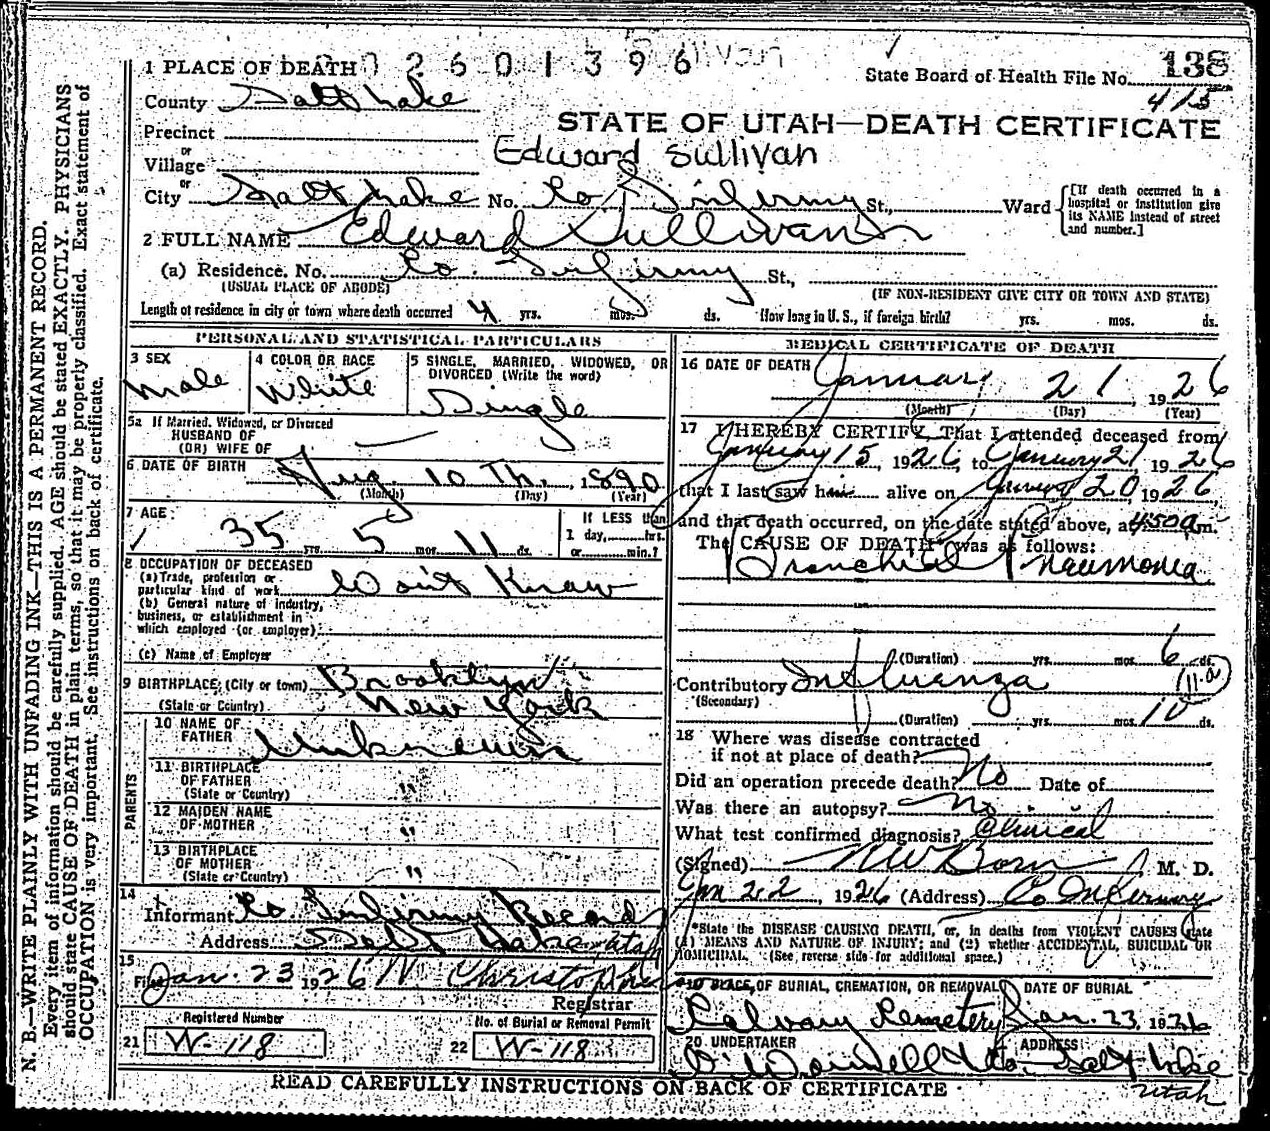 Sullivan
1 PLACE OF DEATH 0 2 6 0 1 3 9 6
State Board of Health File No. 138
415
County Salt Lake
STATE OF UTAH—DEATH CERTIFICATE
Precinct
Edward Sullivan
or
Village
or
City Salt Lake No. Co. Infirmy St., Ward
[If death occurred in a hospital or institution give its NAME instead of street and number.]
2 FULL NAME Edward Sullivan
(a) Residence. No. Co. Infirmy St.,
(USUAL PLACE OF ABODE)
(IF NON-RESIDENT GIVE CITY OR TOWN AND STATE)
Length of residence in city or town where death occurred 4 yrs. mos. ds. How long in U. S., if foreign birth? yrs. mos. ds.
PERSONAL AND STATISTICAL PARTICULARS
3 SEX
Male
4 COLOR OR RACE
White
5 SINGLE, MARRIED, WIDOWED, OR DIVORCED (Write the word)
Single
5a If Married, Widowed, or Divorced
HUSBAND OF
(OR) WIFE OF
6 DATE OF BIRTH Aug 10 Th. 1890
(Month) (Day) (Year)
7 AGE
35 yrs. 5 mos. 11 ds.
If LESS than
1 day, hrs.
or min.?
8 OCCUPATION OF DECEASED
(a) Trade, profession or
particular kind of work Don't Know
(b) General nature of industry,
business, or establishment in
which employed (or employer)
(c) Name of Employer
9 BIRTHPLACE (City or town) Brooklyn
(State or Country) New York
PARENTS
10 NAME OF
FATHER Unknown
11 BIRTHPLACE
OF FATHER "
(State or Country)
12 MAIDEN NAME
OF MOTHER "
13 BIRTHPLACE
OF MOTHER "
(State or Country)
14
Informant Co Infirmy Record
Address Salt Lake Utah
15
Filed Jan. 23 1926
Registrar
Registered Number
21 W-118
No. of Burial or Removal Permit
22 W-118
MEDICAL CERTIFICATE OF DEATH
16 DATE OF DEATH January 21, 1926
(Month) (Day) (Year)
17 I HEREBY CERTIFY, That I attended deceased from
January 15, 1926, to January 21 1926
that I last saw him alive on January 20 1926
and that death occurred, on the date stated above, at 450a m.
The CAUSE OF DEATH* was as follows:
Bronchial Pneumonia
(Duration) yrs. mos. 6 ds.
Contributory Influenza
(Secondary)
11-a
(Duration) yrs. mos. 10 ds.
18 Where was disease contracted
if not at place of death?
Did an operation precede death? No Date of
Was there an autopsy? No
What test confirmed diagnosis? Clinical
(Signed) M. D.
Jan 22, 1926 (Address) Co Infirmy
*State the DISEASE CAUSING DEATH, or, in deaths from VIOLENT CAUSES state
(1) MEANS AND NATURE OF INJURY; and (2) whether ACCIDENTAL, SUICIDAL OR
HOMICIDAL. (See reverse side for additional space.)
19 PLACE OF BURIAL, CREMATION, OR REMOVAL DATE OF BURIAL
Calvary Cemetery Jan. 23, 1926
20 UNDERTAKER ADDRESS
Salt Lake
Utah
READ CAREFULLY INSTRUCTIONS ON BACK OF CERTIFICATE
N. B.—WRITE PLAINLY WITH UNFADING INK—THIS IS A PERMANENT RECORD.
Every item of information should be carefully supplied. AGE should be stated EXACTLY. PHYSICIANS
should state CAUSE OF DEATH in plain terms, so that it may be properly classified. Exact statement of
OCCUPATION is very important. See instructions on back of certificate.